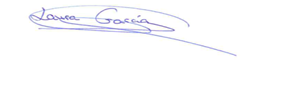 Laura García